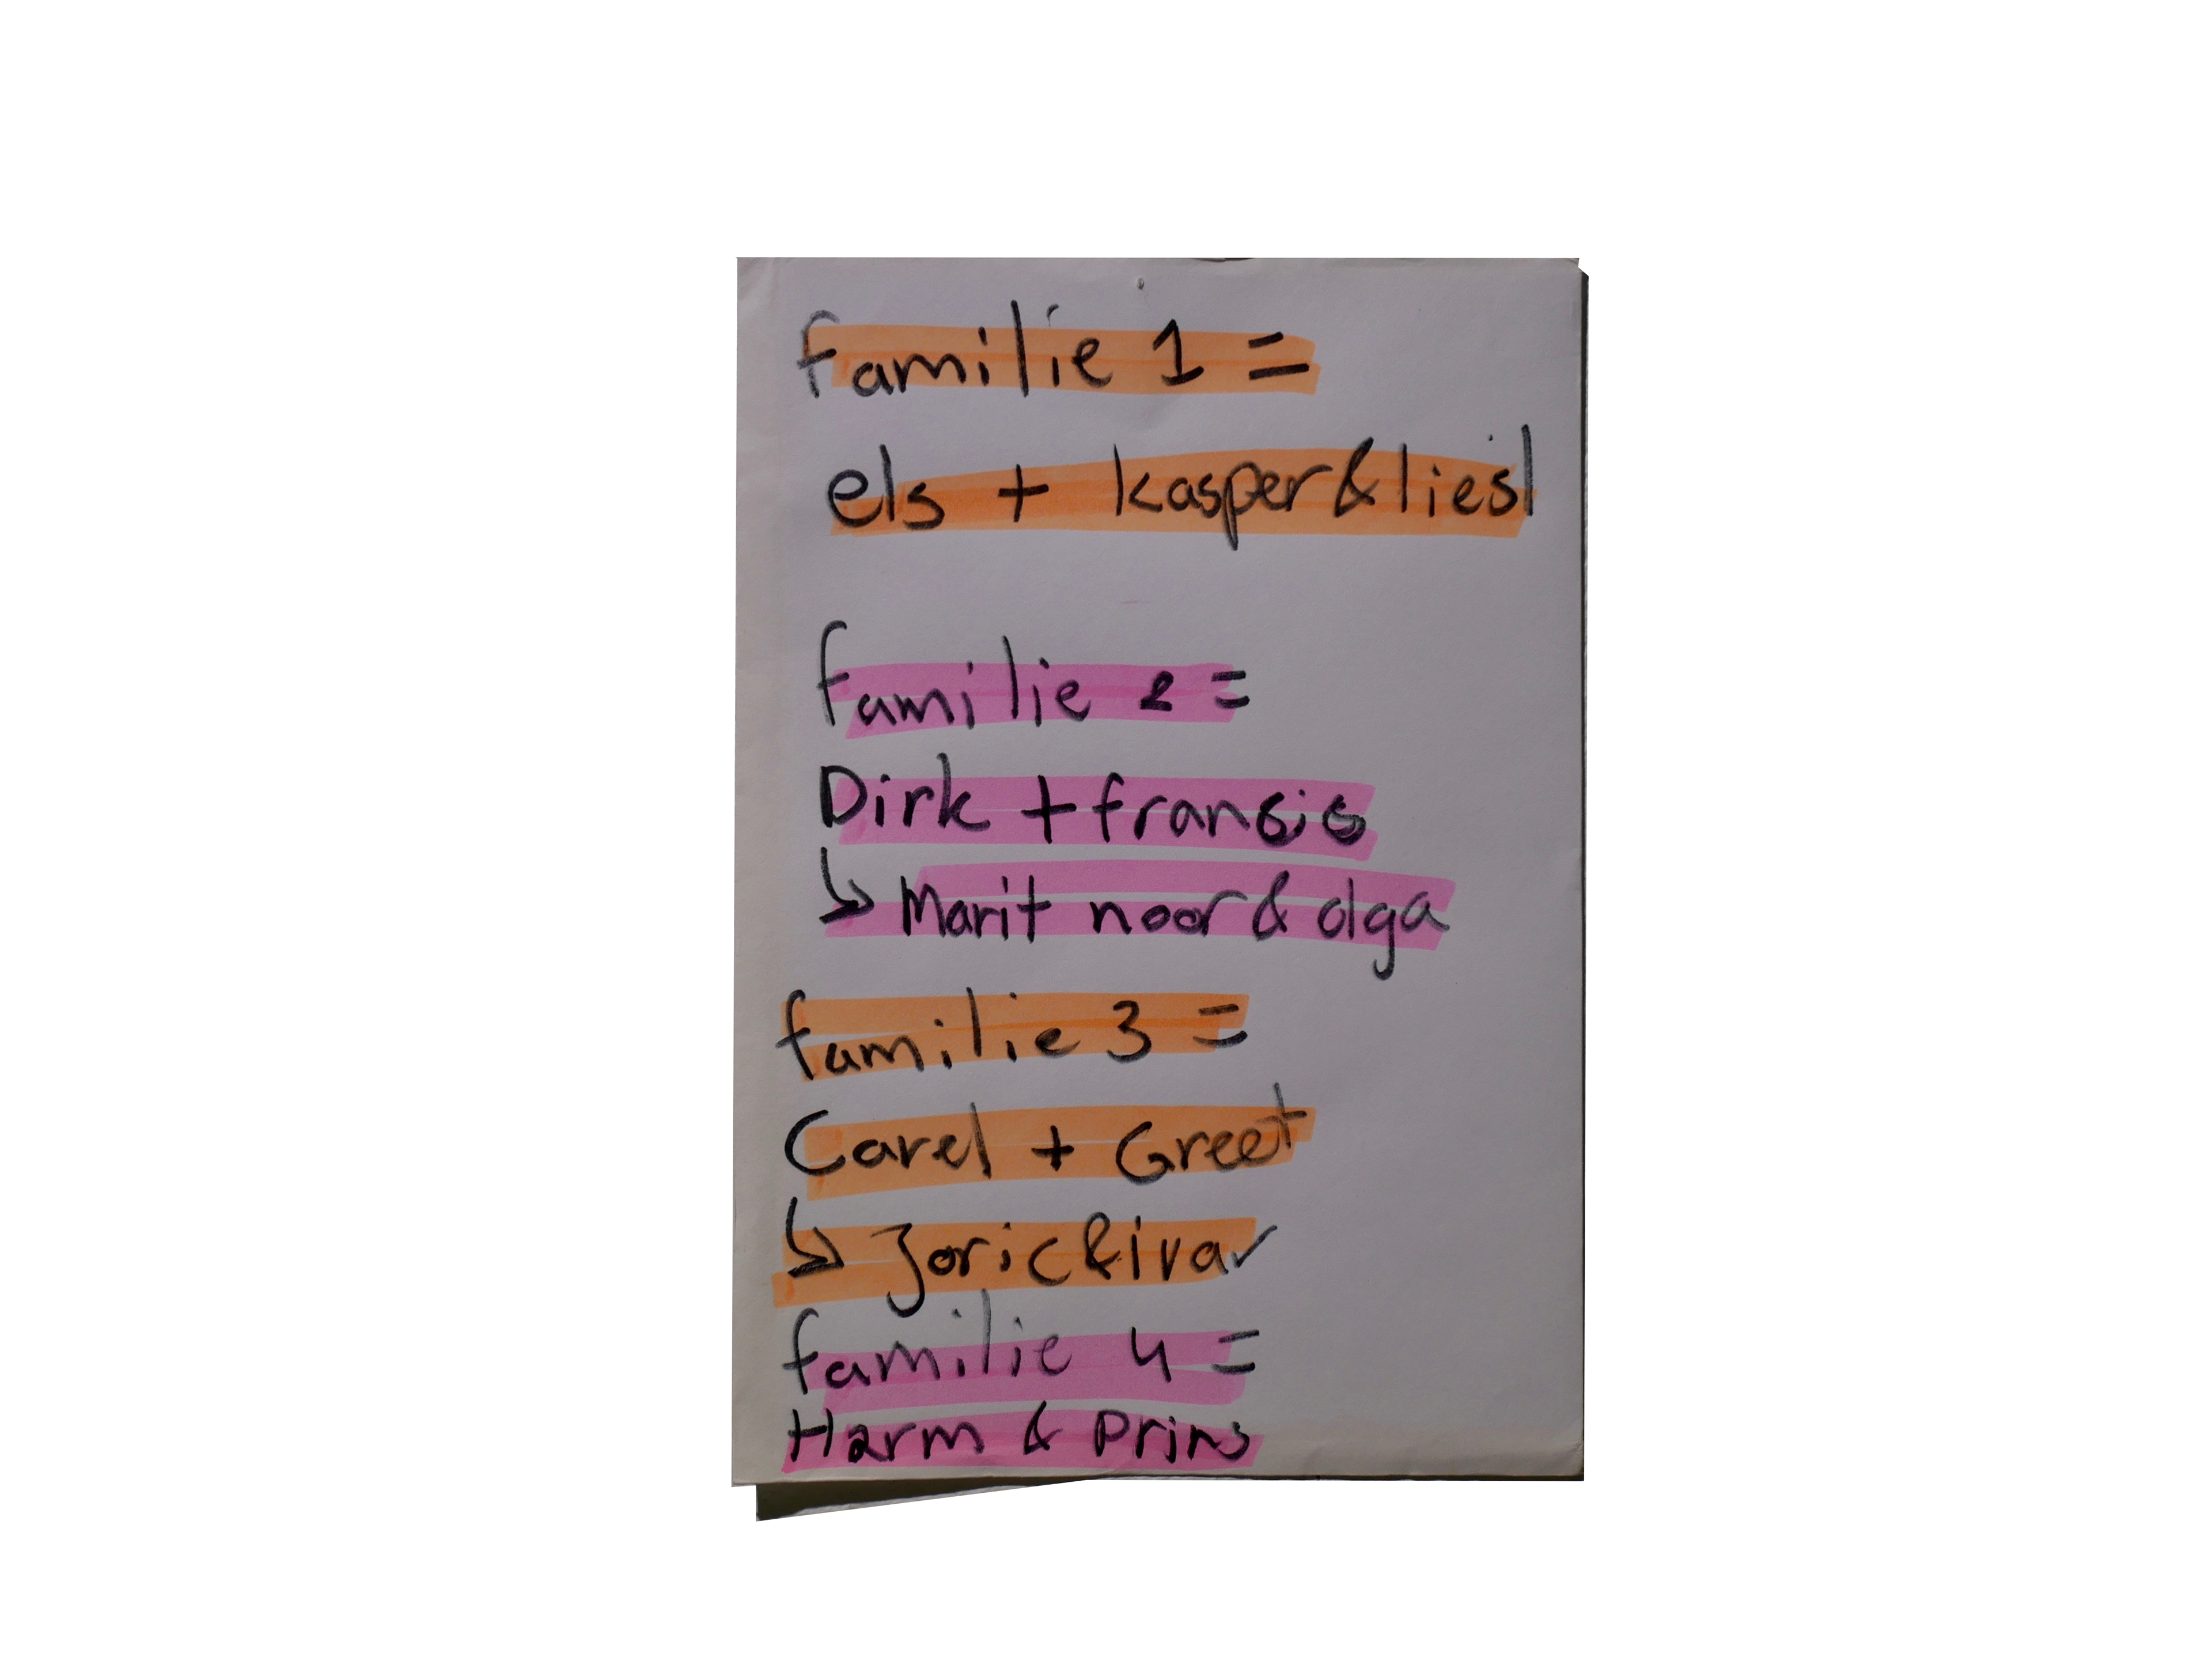 familie 1 =
els + kasper & liesl
familie 2 =
Dirk + fransis
↳ Marit noor & olga
familie 3 =
Carel + Greet
↳ Joric & ivar
familie 4 =
Harm & Prins